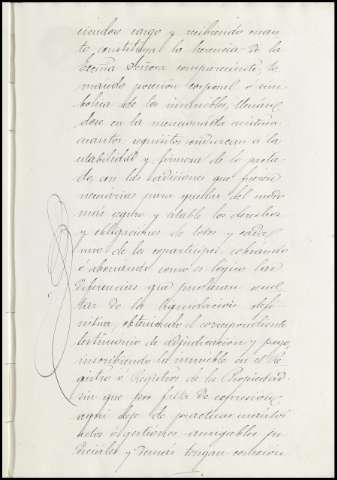 ciendose cargo y recibiendo cuan-
to constituya la herencia de la
Excma Señora compareciente, to-
mando posesion corporal ó sim-
bólica de los inmuebles, llenan-
dose en la mencionada escritura
cuantos requisitos conduzcan a la
estabilidad y firmeza de lo pacta-
do, con las adiciones que fueren
necesarias para quedar del modo
mas seguro y estable los derechos
y obligaciones de todos y cada
uno de los coparticipes, cobrando
ó abonando como es logico las
diferencias que pudieran resul-
tar de la liquidacion defi-
nitiva, obteniendo el correspondiente
testimonio de adjudicacion y pago,
inscribiendo lo inmueble en el Re-
gistro ó Registros de la Propiedad
sin que por falta de expresion
aqui deje de practicar cuantos
actos ó gestiones amigables ju-
diciales y demas tengan conexion